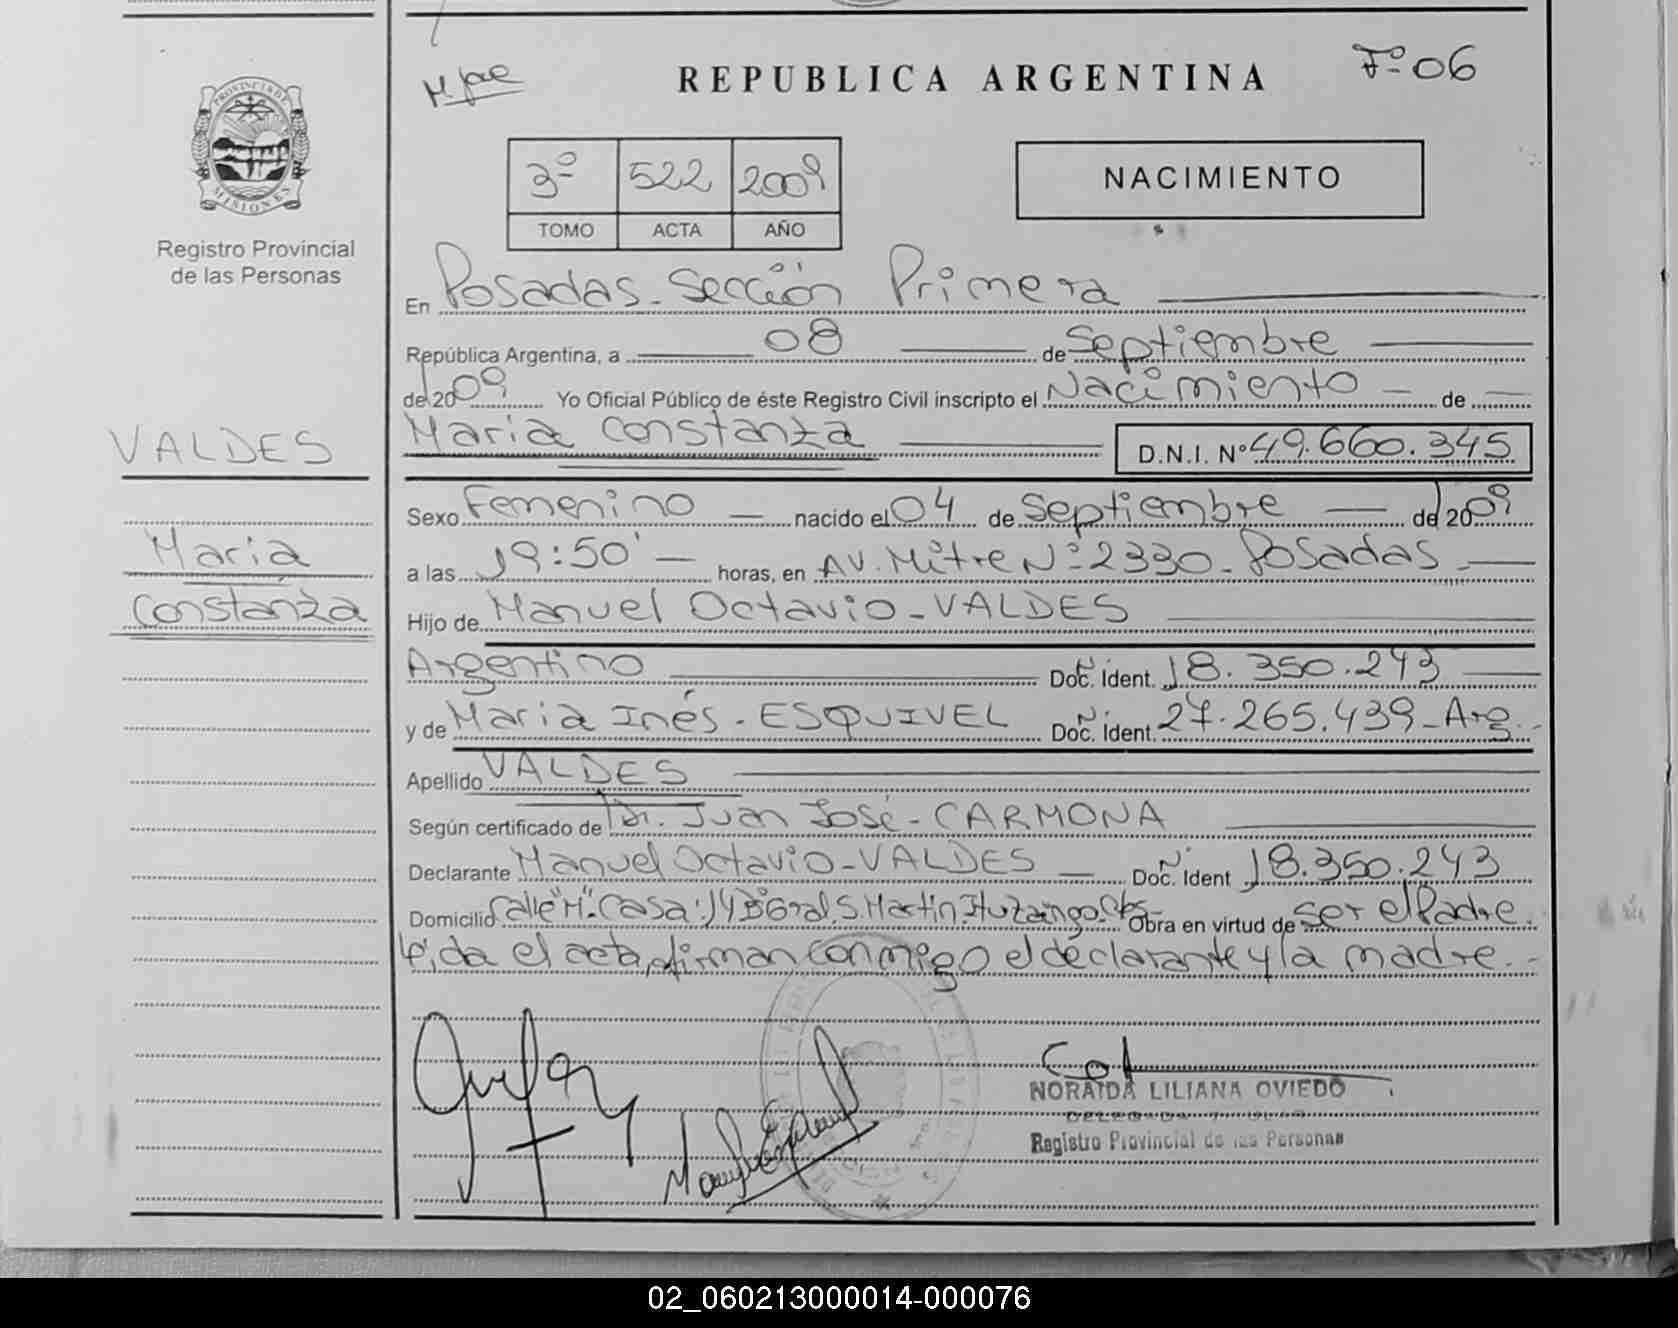 REPUBLICA ARGENTINA
Fº 06
PROVINCIA DE
MISIONES
Registro Provincial
de las Personas
3º 522 2009
TOMO ACTA AÑO
NACIMIENTO
En Posadas - Sección Primera
República Argentina, a 08 de Septiembre
de 2009 Yo Oficial Público de éste Registro Civil inscripto el Nacimiento - de
Maria Constanza D.N.I. Nº 49.660.345
VALDES
Maria
Constanza
Sexo Femenino - nacido el 04 de Septiembre de 2009
a las 19:50' - horas, en AV. Mitre Nº 2330 - Posadas
Hijo de Manuel Octavio - VALDES
Argentino Doc. Ident. 18.350.243
y de Maria Inés - ESQUIVEL Doc. Ident. 27.265.439 - Arg.
Apellido VALDES
Según certificado de Dr. Juan José - CARMONA
Declarante Manuel Octavio - VALDES - Doc. Ident 18.350.243
Domicilio Calle "M" - Casa: 14 Bº Gral. S. Martin Ituzaingo. Ctes - Obra en virtud de ser el Padre.
Leida el acta, firman conmigo el declarante y la madre. -
NORAIDA LILIANA OVIEDO
DELEGADA TITULAR
Registro Provincial de las Personas
02_060213000014-000076